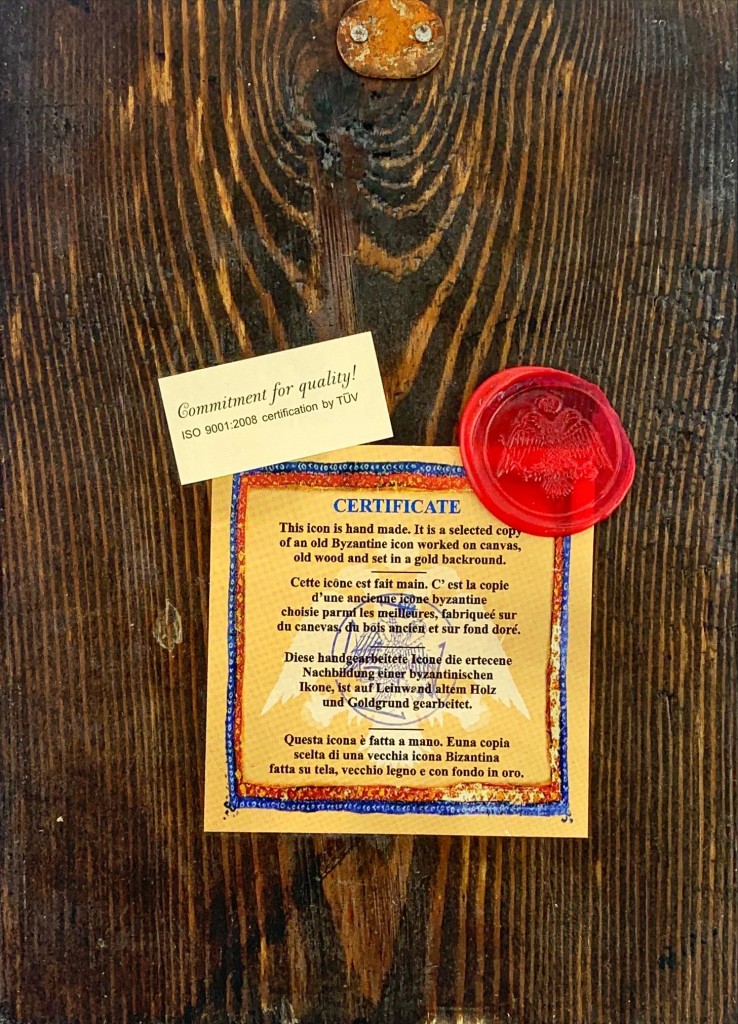 Commitment for quality!
ISO 9001:2008 certification by TÜV
CERTIFICATE
This icon is hand made. It is a selected copy
of an old Byzantine icon worked on canvas,
old wood and set in a gold backround.
Cette icône est fait main. C' est la copie
d'une ancienne icône byzantine
choisie parmi les meilleures, fabriqueé sur
du canevas, du bois ancien et sur fond doré.
Diese handgearbeitete Icone die ertecene
Nachbildung einer byzantinischen
Ikone, ist auf Leinwand altem Holz
und Goldgrund gearbeitet.
Questa icona è fatta a mano. Euna copia
scelta di una vecchia icona Bizantina
fatta su tela, vecchio legno e con fondo in oro.